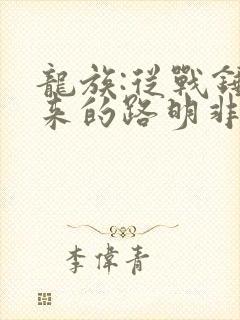 龍族:從戰錘
來的路明非
李偉青